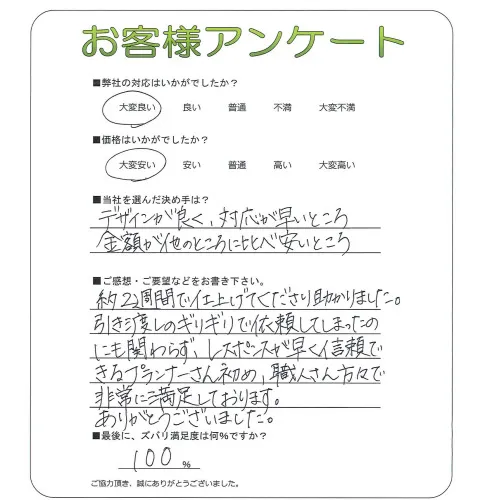 お客様アンケート
■弊社の対応はいかがでしたか？
大変良い 良い 普通 不満 大変不満
■価格はいかがでしたか？
大変安い 安い 普通 高い 大変高い
■当社を選んだ決め手は？
デザインが良く、対応が早いところ
金額が他のところに比べ安いところ
■ご感想・ご要望などをお書き下さい。
約2週間で仕上げてくださり助かりました。
引き渡しのギリギリで依頼してしまったの
にも関わらず、レスポンスが早く信頼で
きるプランナーさん初め、職人さん方々で
非常に満足しております。
ありがとうございました。
■最後に、ズバリ満足度は何％ですか？
100 %
ご協力頂き、誠にありがとうございました。